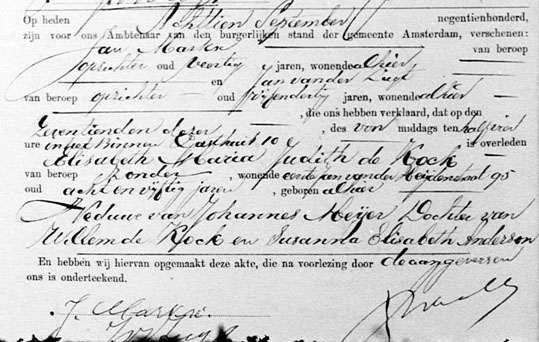 Op heden achttien September negentienhonderd,
zijn voor ons Ambtenaar van den burgerlijken stand der gemeente Amsterdam, verschenen:
Jan Marken van beroep
oprichter oud veertig jaren, wonende alhier
en Jan van der
van beroep oprichter oud vijfendertig jaren, wonende alhier
, die ons hebben verklaard, dat op den
zeventienden dezer des voormiddags ten half vier
ure in het Binnen Gasthuis 10 is overleden
Elisabeth Maria Judith de Kock
van beroep zonder, wonende eerste Jan van der Heijdenstraat 95
oud acht en vijftig jaren, geboren alhier
Weduwe van Johannes Meijer Dochter van
Willem de Kock en Susanna Elisabeth Anderson
En hebben wij hiervan opgemaakt deze akte, die na voorlezing door de aangevers en
ons is onderteekend.
J. Marken